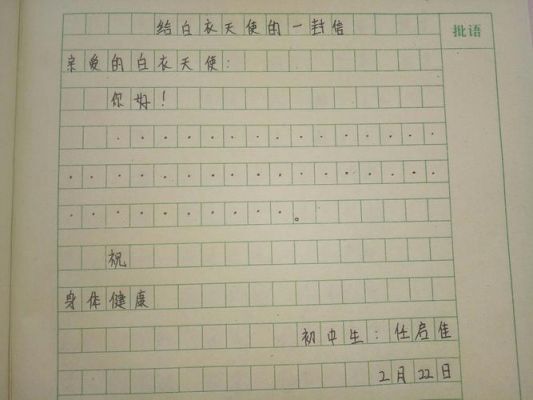 给白衣天使的一封信
批语
亲爱的白衣天使：
你好！
· · · · · · · · · · · · · ·
· · · · · · · · · · · · · · · ·
· · · · · · · · · · 。
祝
身体健康
初中生：任启佳
2月22日